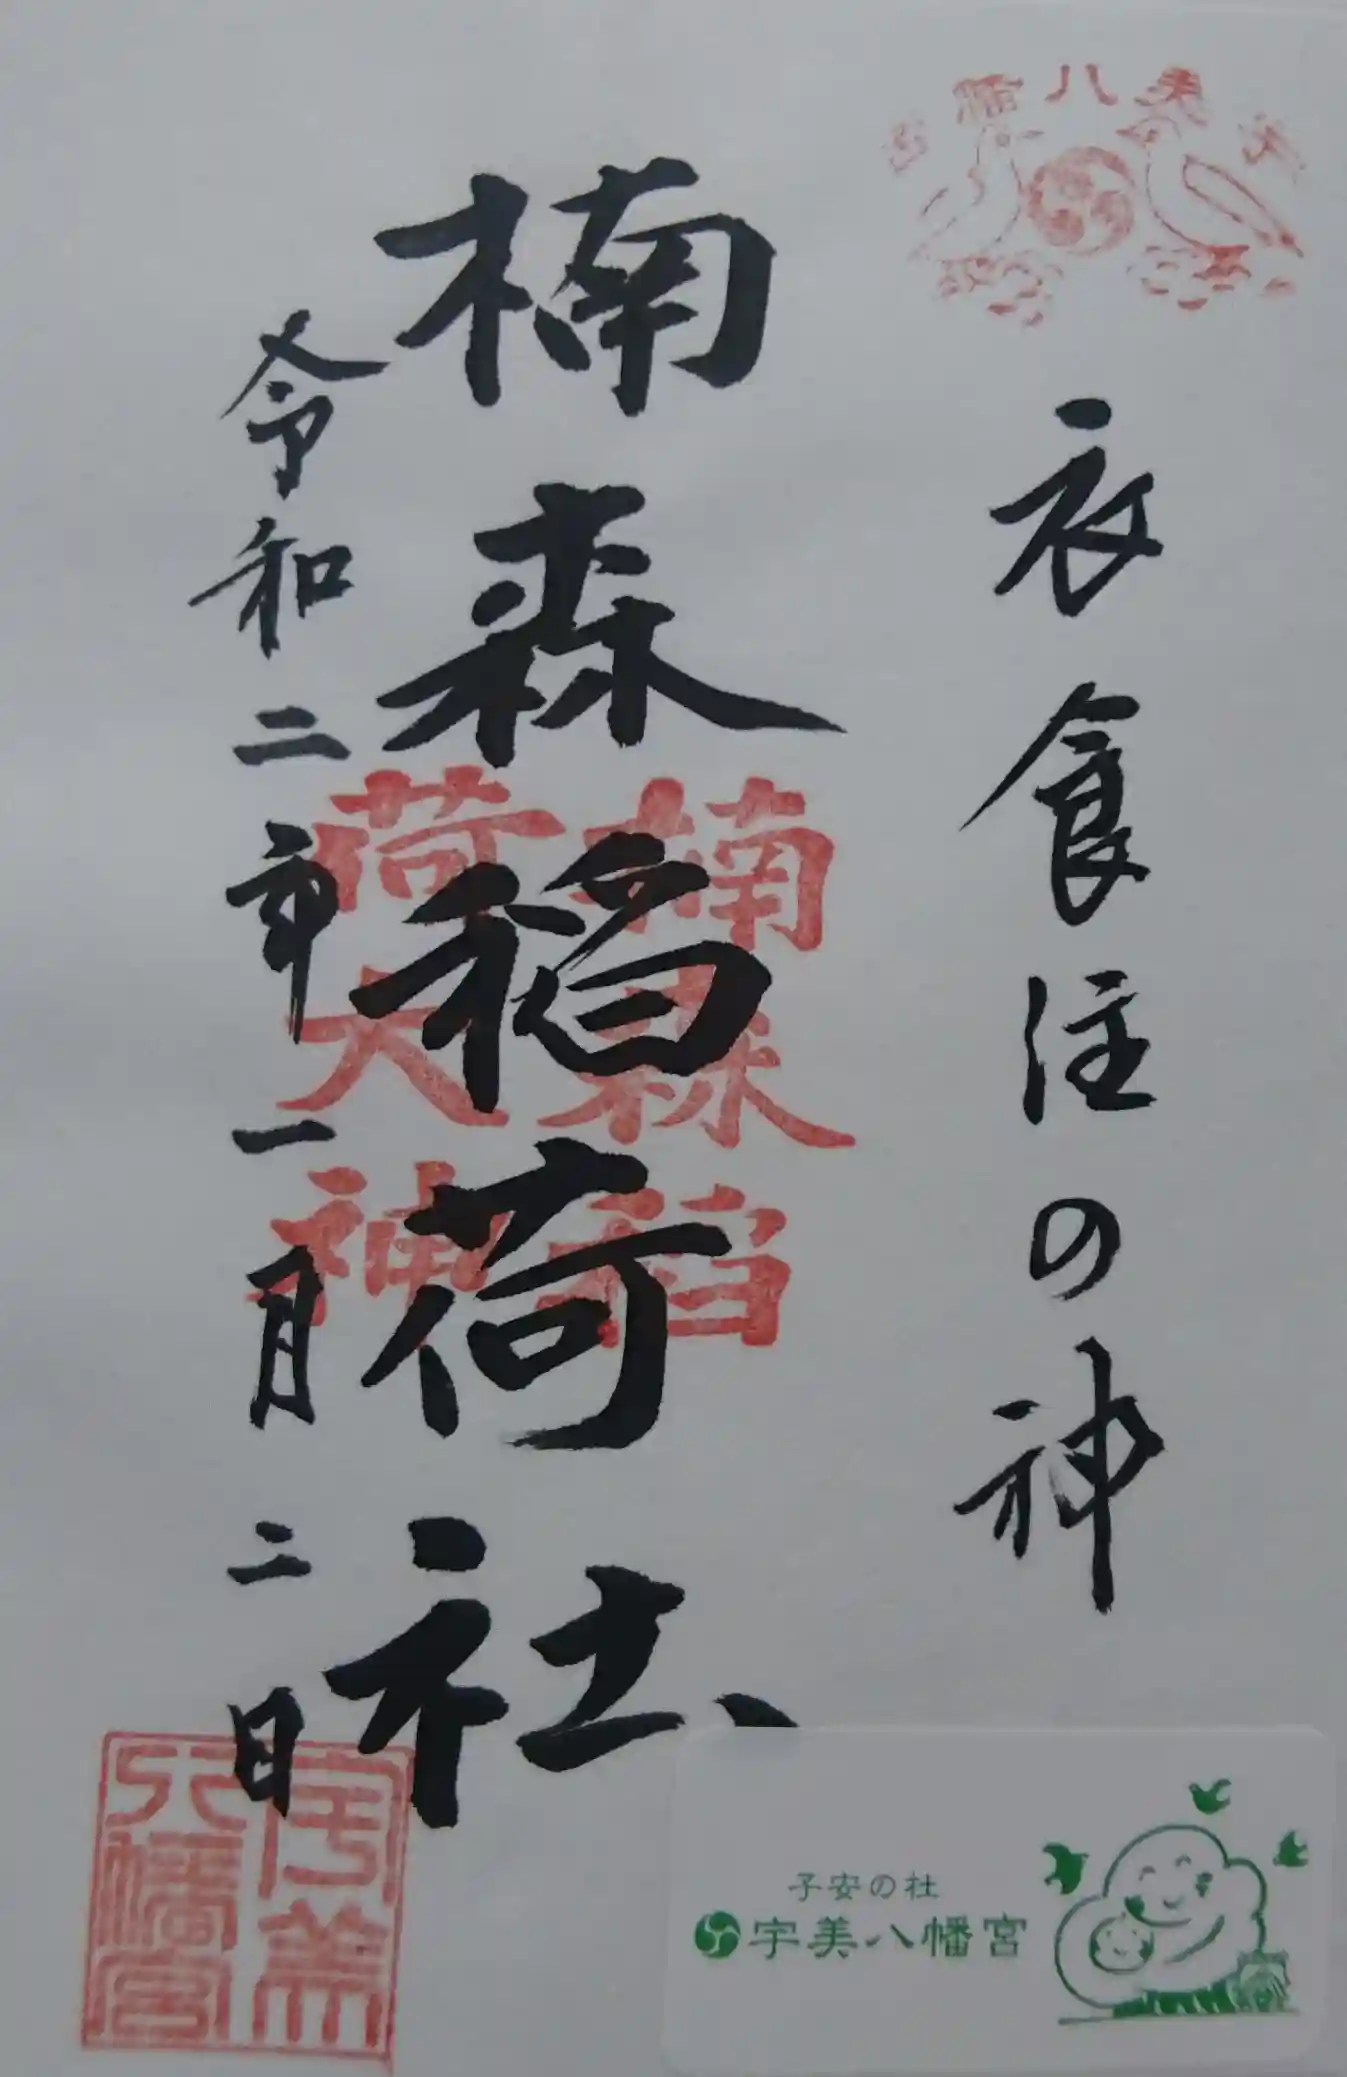 宇美八幡宮
衣食住の神
楠森稲荷社
楠森稲
荷大神
令和二年一月二日
宇美
八幡宮
子安の杜
宇美八幡宮